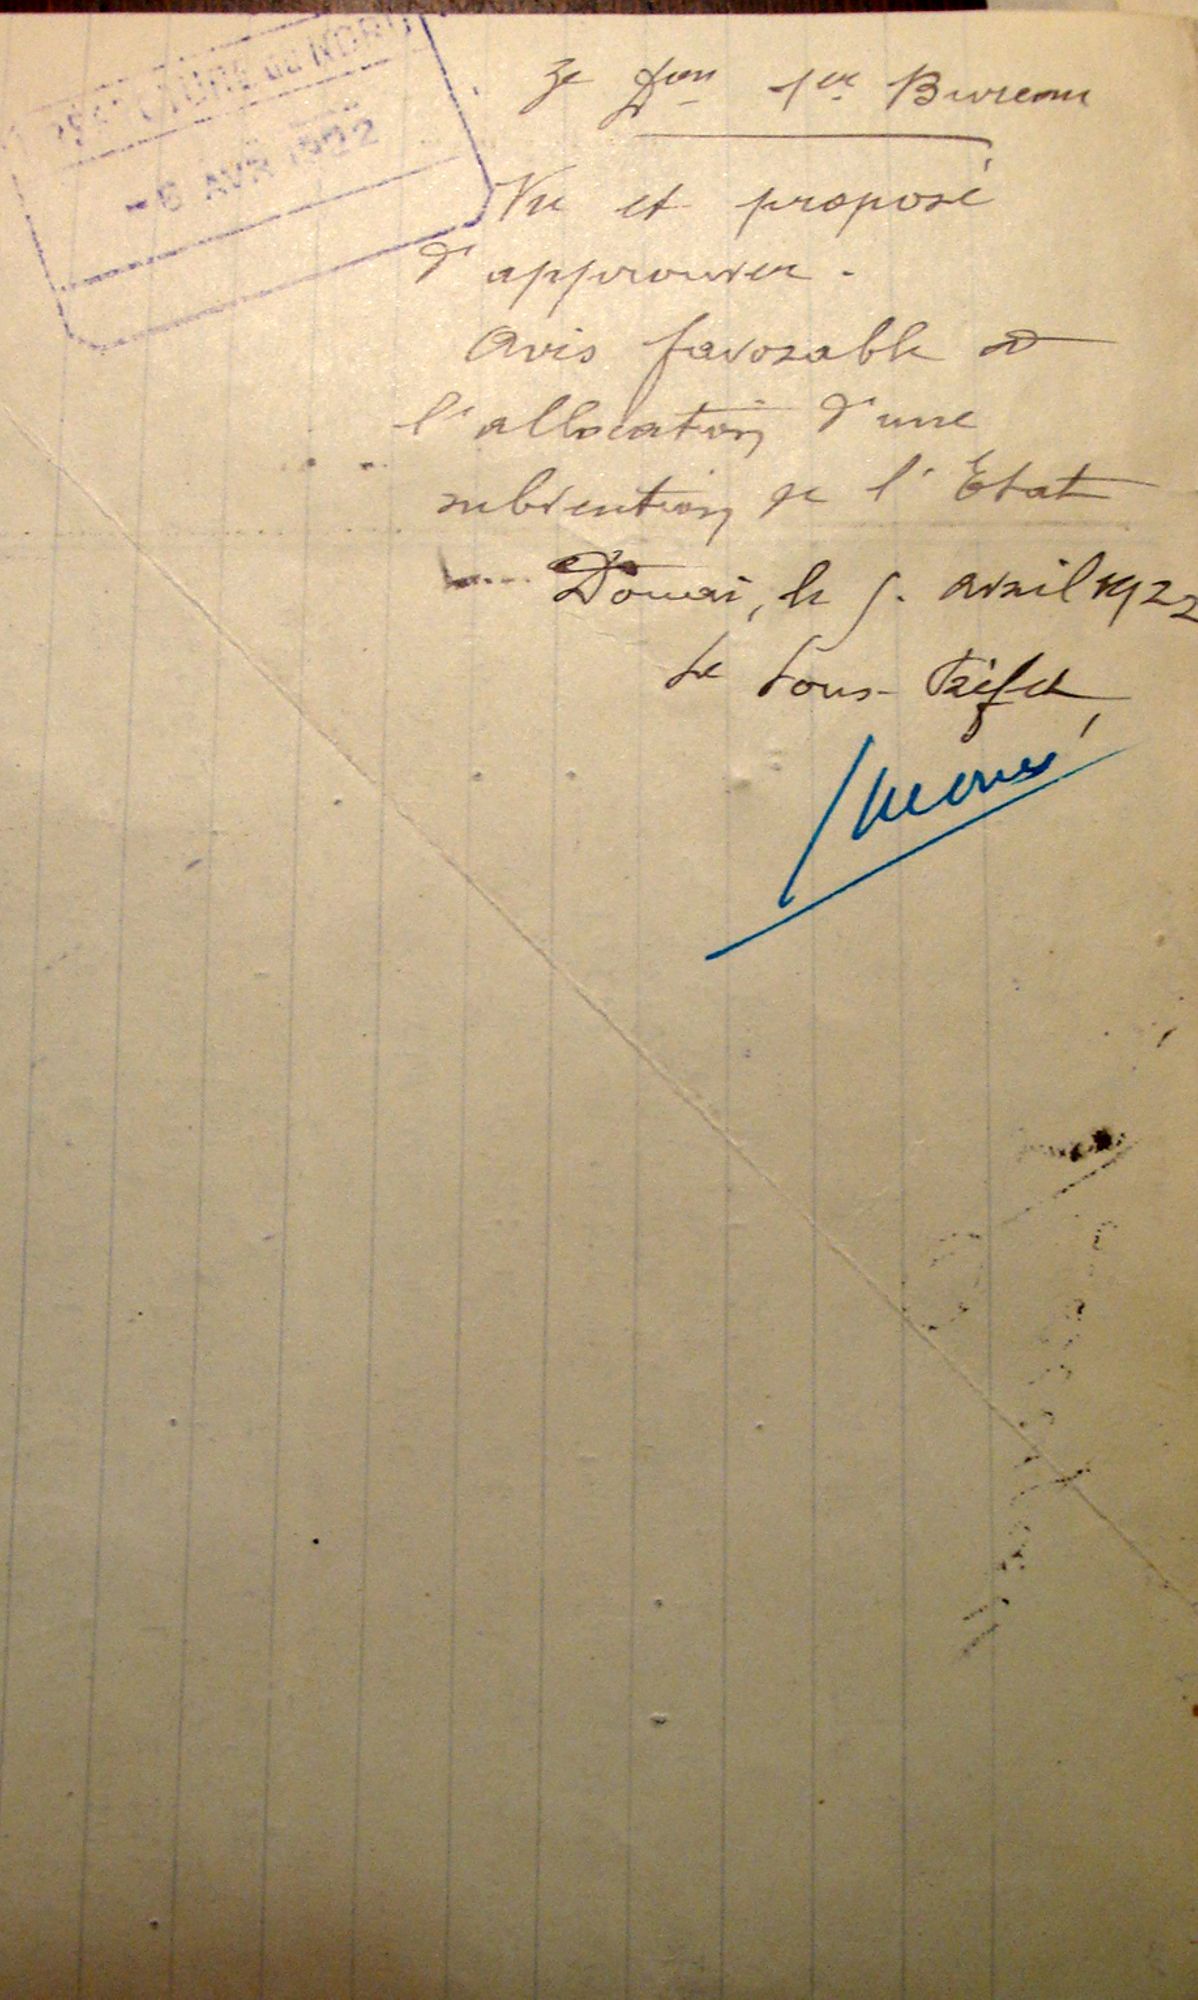 PREFECTURE DU NORD
-6 AVR 1922
3e Don 1er Bureau
Vu et proposé
d'approuver.
Avis favorable à
l'allocation d'une
subvention de l'Etat
Douai, le 5. avril 1922
Le Sous-Préfet,